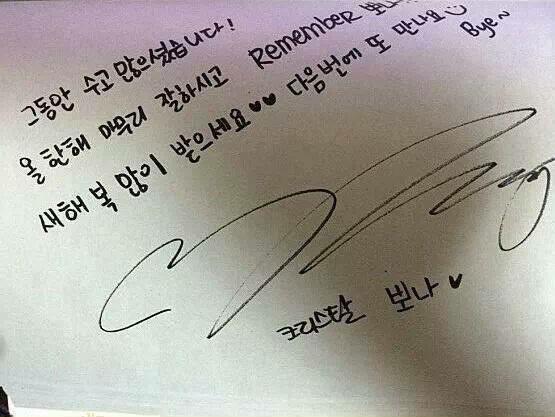 그동안 수고 많으셨습니다!
올 한해 마무리 잘하시고 Remember 뽀나
새해 복 많이 받으세요♥♥ 다음번에 또 만나요 Bye~
크리스탈 뽀나 ♥